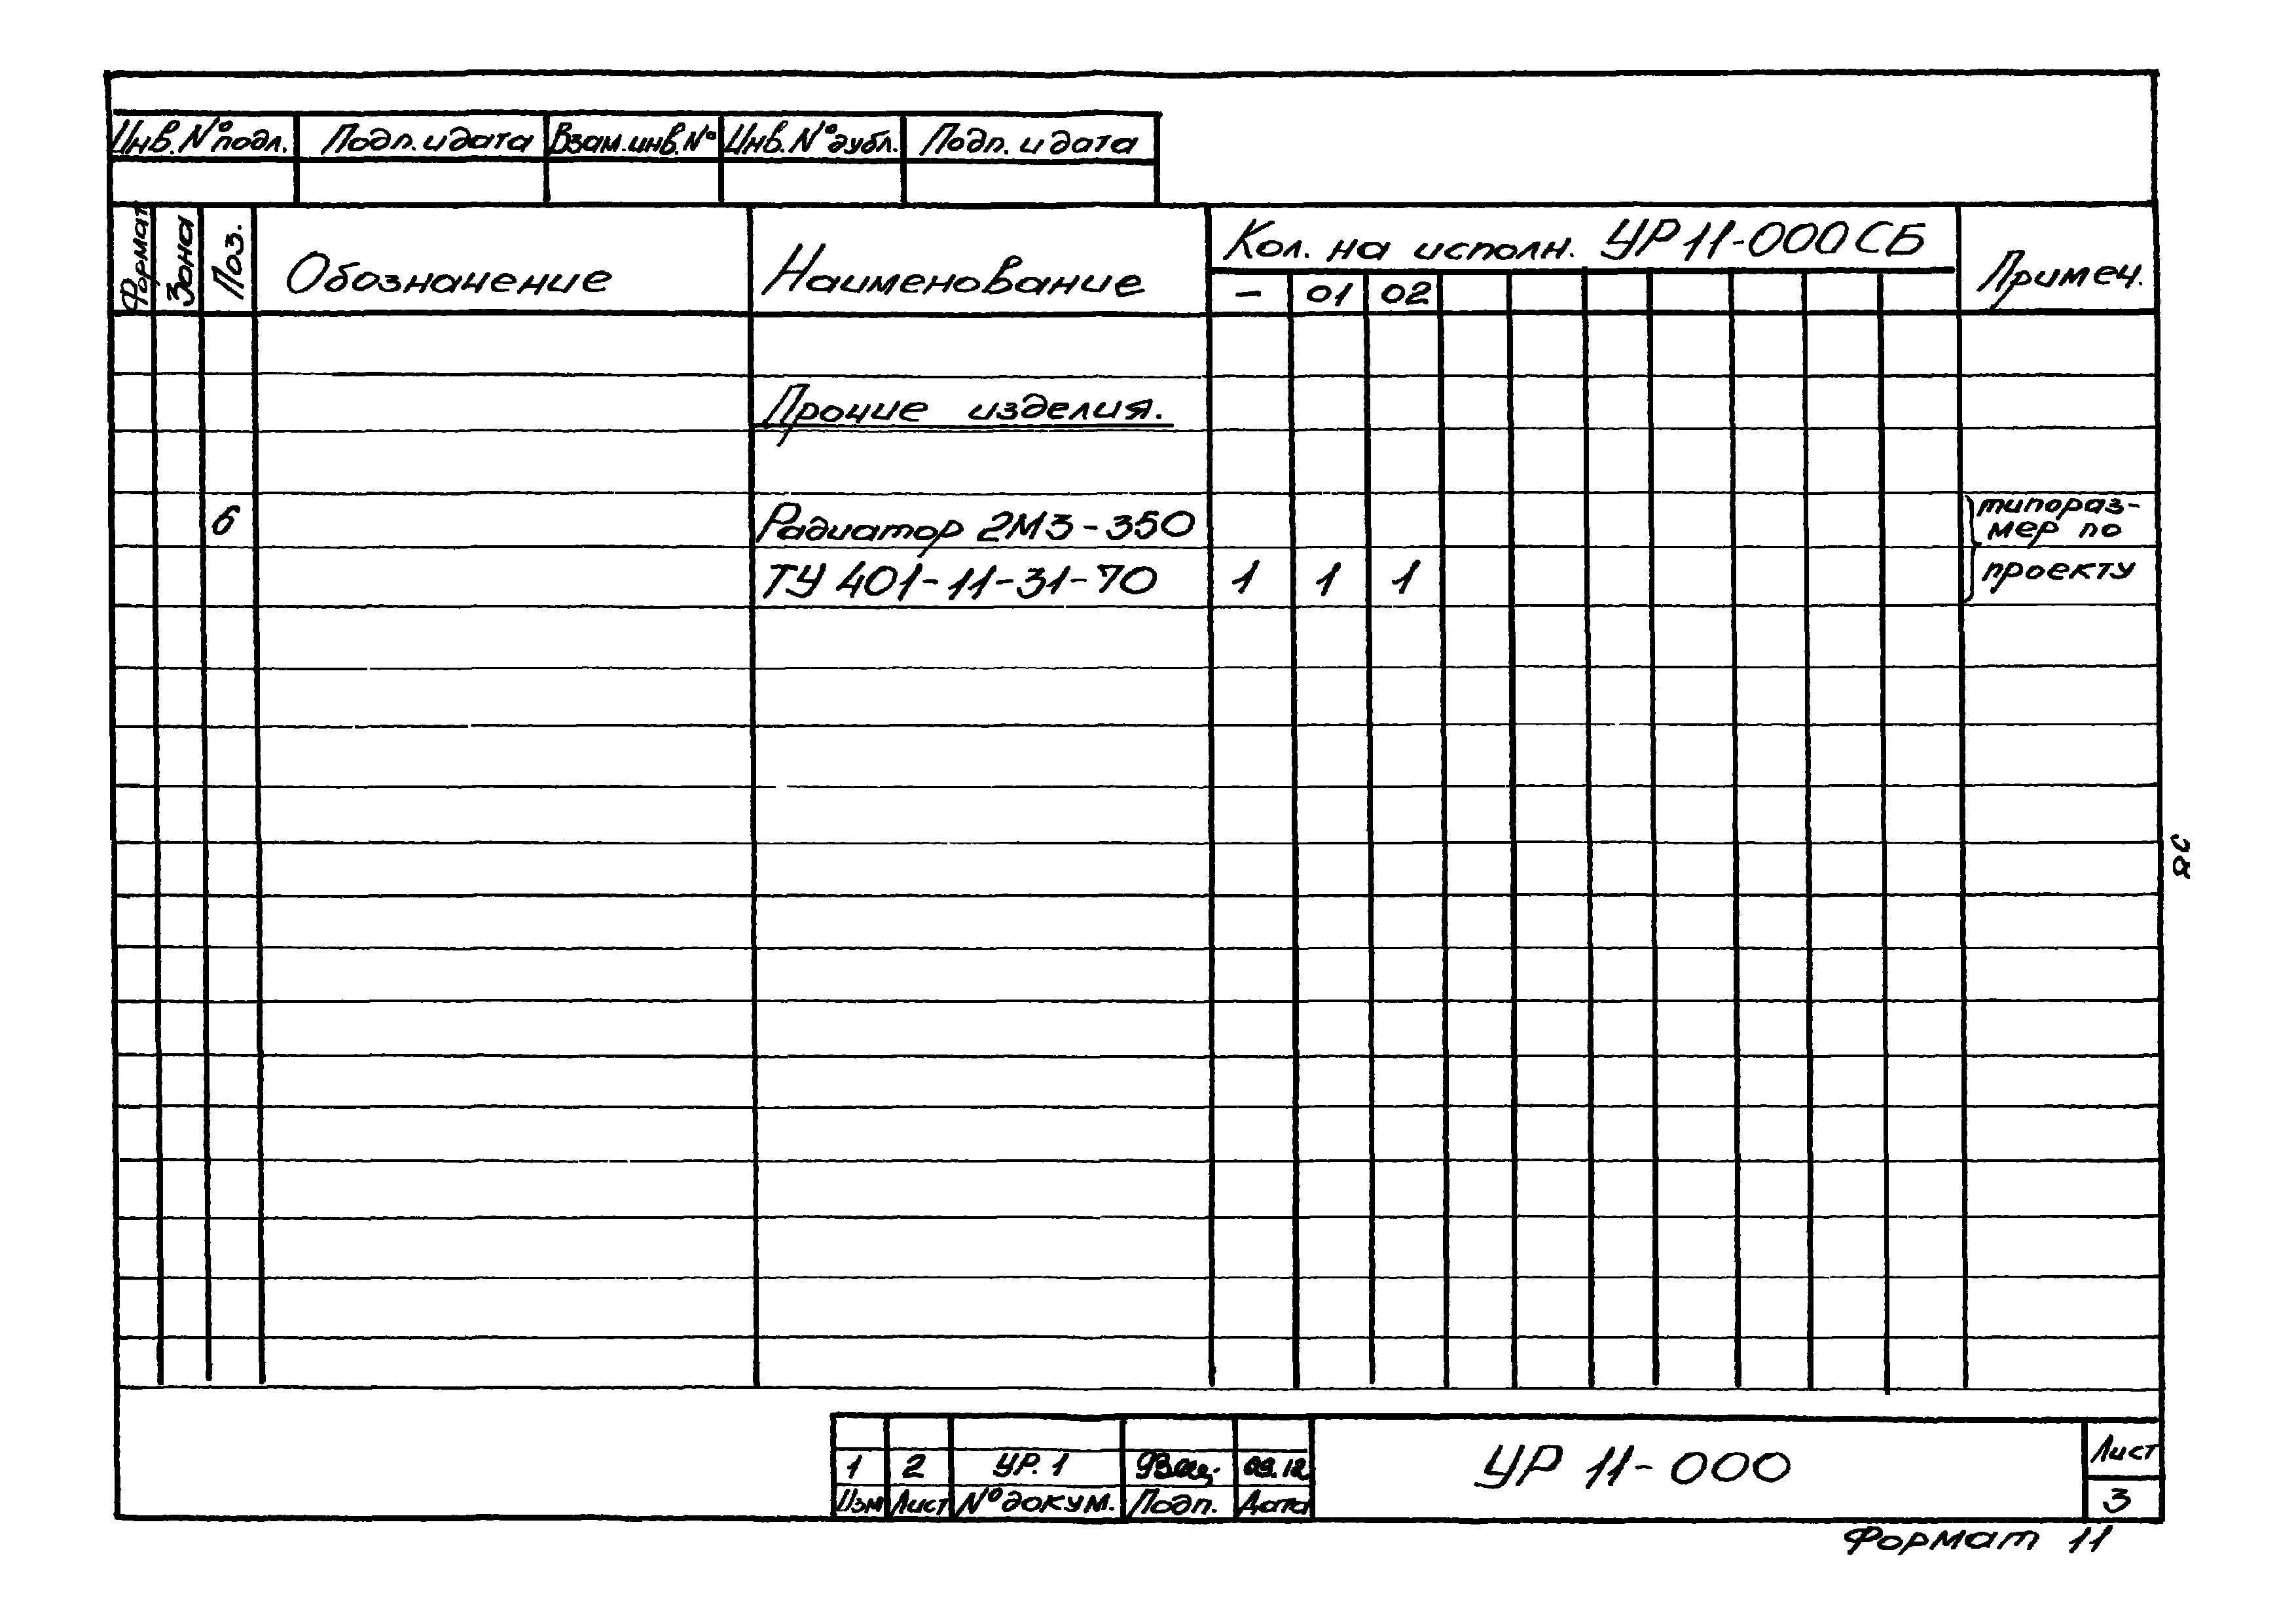 Инв. № подл. Подп. и дата Взам. инв. № Инв. № дубл. Подп. и дата
Формат Зона Поз. Обозначение Наименование Кол. на исполн. УР 11-000 СБ Примеч.
- 01 02
Прочие изделия.
6 Радиатор 2М3-350 типораз-
мер по
ТУ 401-11-31-70 1 1 1 проекту
28
1 2 УР. 1 09.12
Изм Лист № докум. Подп. Дата
УР 11-000
Лист
3
Формат 11